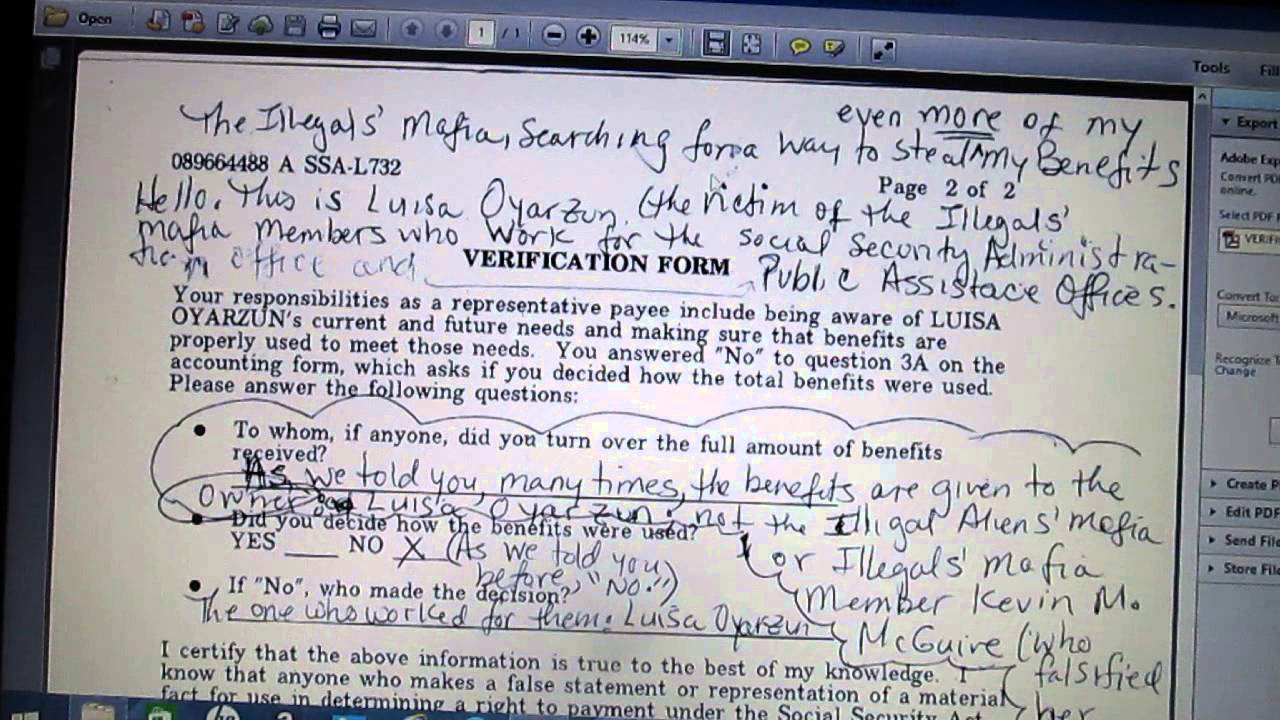 Open
1 / 1
114%
Tools
Fill
Export
Adobe Exp
Convert PD
online.
Select PDF F
VERIFI
Convert To
Microsoft
Recognize T
Change
Create P
Edit PDF
Send File
Store File
even more of my
The Illegals' Mafia, Searching for a way to steal ^ my Benefits
089664488 A SSA-L732
Page 2 of 2
Hello. This is Luisa Oyarzun (the victim of the Illegals'
mafia members who work for the Social Security Administra-
tion office and Public Assistace Offices.
VERIFICATION FORM
Your responsibilities as a representative payee include being aware of LUISA
OYARZUN's current and future needs and making sure that benefits are
properly used to meet those needs. You answered "No" to question 3A on the
accounting form, which asks if you decided how the total benefits were used.
Please answer the following questions:
• To whom, if anyone, did you turn over the full amount of benefits
received?
As we told you, many times, the benefits are given to the
Owner Luisa Oyarzun, not the Illigal Aliens' mafia
• Did you decide how the benefits were used?
YES ____ NO X (As we told you
before, "No.")
or Illegals' mafia
Member Kevin M.
McGuire (who
falsified
her
• If "No", who made the decision?
The one who worked for them: Luisa Oyarzun
I certify that the above information is true to the best of my knowledge. I
know that anyone who makes a false statement or representation of a material
fact for use in determining a right to payment under the Social Security Act